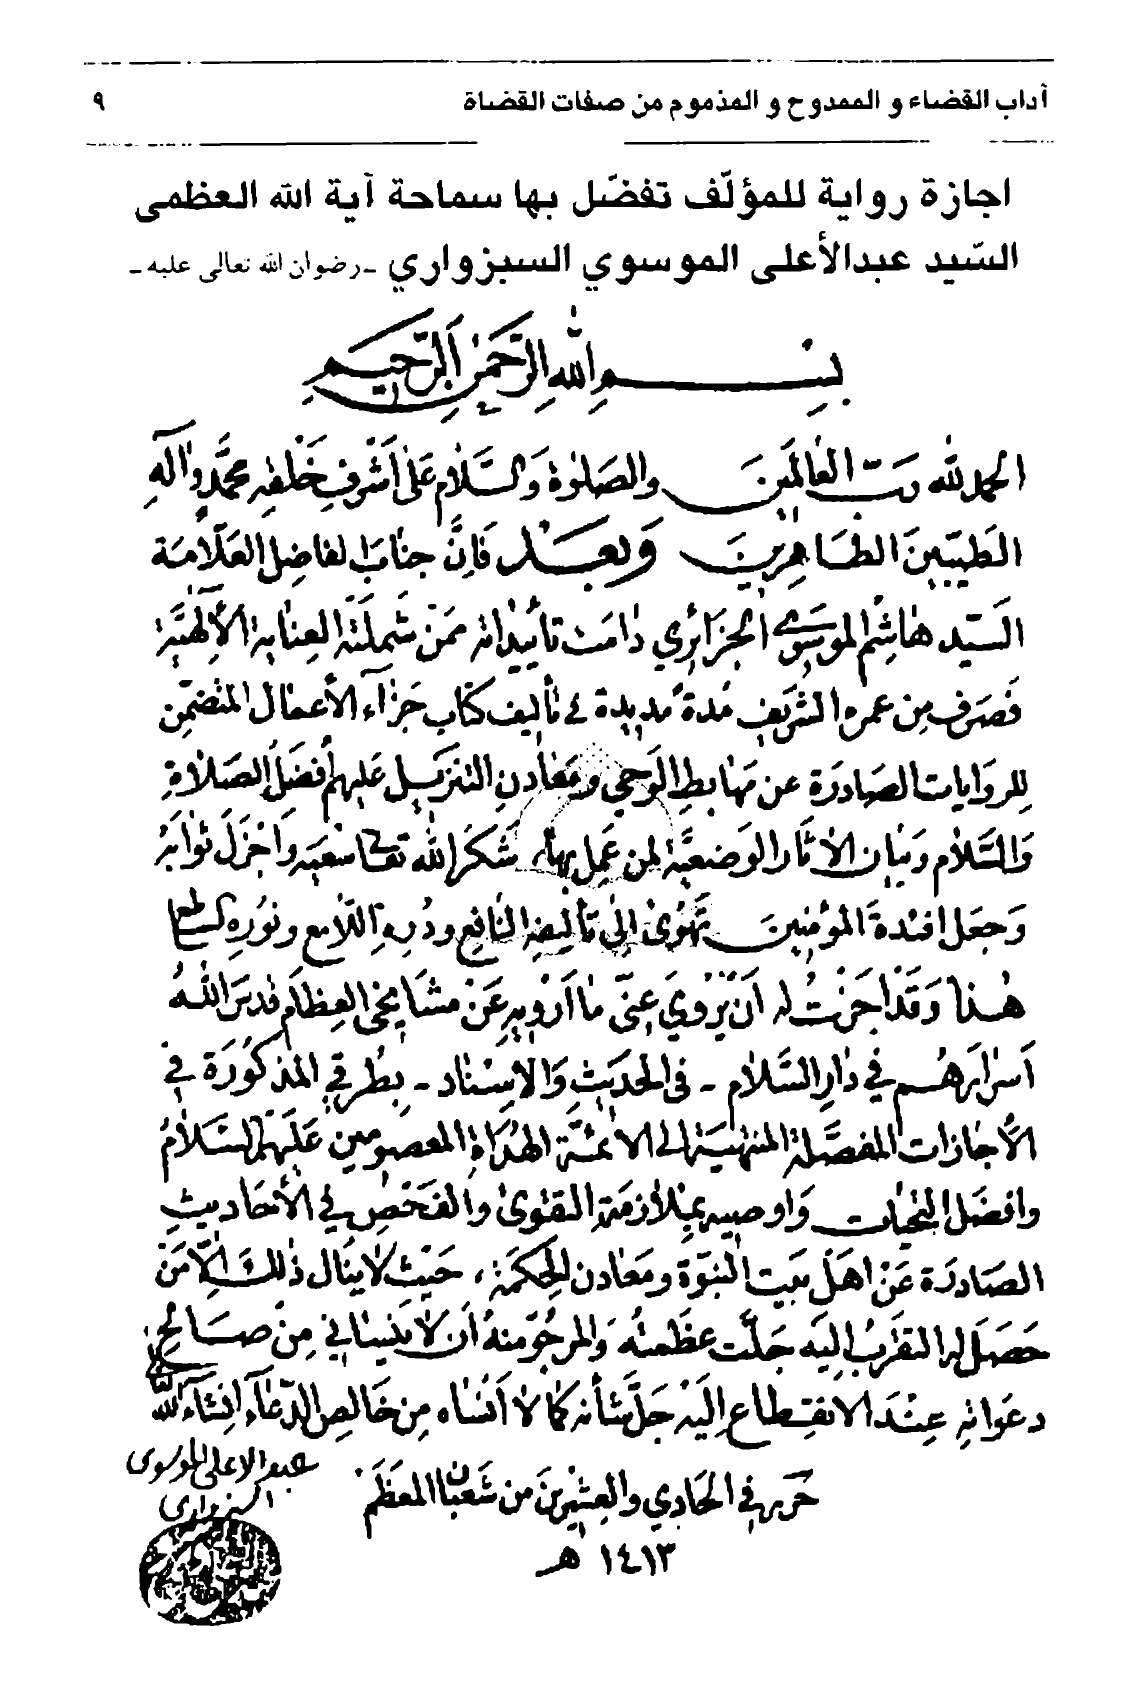 آداب القضاء و الممدوح و المذموم من صفات القضاة ٩
اجازة رواية للمؤلّف تفضّل بها سماحة آية الله العظمى
السّيد عبدالأعلى الموسوي السبزواري ـ رضوان الله تعالى عليه ـ
بِسْمِ اللهِ الرَّحْمٰنِ الرَّحِيمِ
الحمد لله رَبّ العٰالمَين والصلوٰة وَالسَّلٰام عَلىٰ اَشْرفِ خَلْقِه محمَّد وٰآلهِ
الطَيّبينَ الطَاهِرينَ وَبعَدْ فَاِنَّ جنٰابَ الفاضِل العَلّامَة
السَيّد هٰاشِم الموسَوي الجزٰائري دٰامَت تأييدٰاته ممَنْ شَملَتْه العِنٰاية الألٰهيَّة
فَصَرف مِن عمره الشريف مُدة مديدة في تأليف كتٰاب جَزٰاء الأعمٰال المتضمّن
للروٰايات الصٰادرَة عن مَهٰابط الوَحي ومَعٰادنِ التنزيل عَليهم أفضَل الصَلاٰةِ
وَالسَّلاٰم وبَيٰان الآثٰار الوَضعيَّة لمن عَمِل بهٰا، شكَرَ الله تعٰالى سَعْيَه وَاَجْزلَ ثوٰابَهُ
وَجعَل افئدةَ المؤمنِينَ تَهْوىٰ اِلىٰ تأليفِه النٰافِع ودُرهِ اللّٰامع ونوُره السٰاطع
هٰذا وَقَدْ اَجَزْتُ له اَنْ يَرْوي عنّي مٰا اَرْويهِ عَنْ مشٰايخي العِظٰام قدسَ اللهُ
اَسرٰارَهُم في دٰارِ السَّلاٰم ـ في الحَديثِ وَالاِسْنٰاد ـ بطُرقي المذكورَة في
الأجٰازٰات المفصَّلة المنتهيَة الى الأئمَّة الهُدٰاة المعصومين عَليَهم السَّلاٰمُ
وافضَل التحيّٰات وَاوصيه بمُلاٰزمَة التقوىٰ والفَحْص في الأحٰاديثِ
الصٰادرَة عَنْ اهَل بَيت النبوّة ومَعٰادن الحِكمَة، حَيْث لاٰ ينٰال ذٰلك اِلاّ مَنْ
حصَل له التقرّب اِليَه جَلَّت عظَمتُه وَالمرجوّ منهُ اَن لاٰ يَنسٰاني مِنْ صَالح
دعَوٰاته عِنْدَ الانقِطاع اِليَه جَلَّ شأنه كمٰا لاٰ اَنسٰاه مِن خٰالِص الدّعٰاء اِنشٰاء اللّه تعالى
عبد الاعلى الموسوى
السبزوارى
حَرّر في الحٰادي والعِشرينَ من شَعبٰان المعَظَّم
١٤١٣ هـ